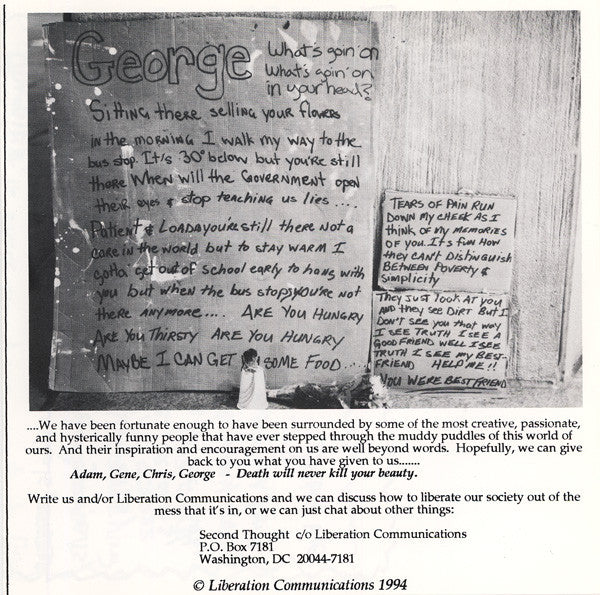 George What's goin' on
What's goin' on
in your head?
Sitting there selling your flowers
in the morning I walk my way to the
bus stop. It's 30° below but you're still
there When will the Government open
their eyes & stop teaching us lies ....
Patient & you're still there Not a
care in the world but to stay warm I
gotta get out of school early to hang with
you but when the bus stops you're not
there anymore.... Are You Hungry
Are You Thirsty Are You Hungry
Maybe I can get some food...
Tears of pain run
down my cheek as I
think of my memories
of you. It's fun how
they can't distinguish
between poverty &
simplicity
They just look at you
and they see dirt but I
don't see you that way
I see truth I see a
good friend well I see
truth I see my best
friend Help me!!
You were best friend
....We have been fortunate enough to have been surrounded by some of the most creative, passionate,
and hysterically funny people that have ever stepped through the muddy puddles of this world of
ours. And their inspiration and encouragement on us are well beyond words. Hopefully, we can give
back to you what you have given to us.......
Adam, Gene, Chris, George - Death will never kill your beauty.
Write us and/or Liberation Communications and we can discuss how to liberate our society out of the
mess that it's in, or we can just chat about other things:
Second Thought c/o Liberation Communications
P.O. Box 7181
Washington, DC 20044-7181
© Liberation Communications 1994